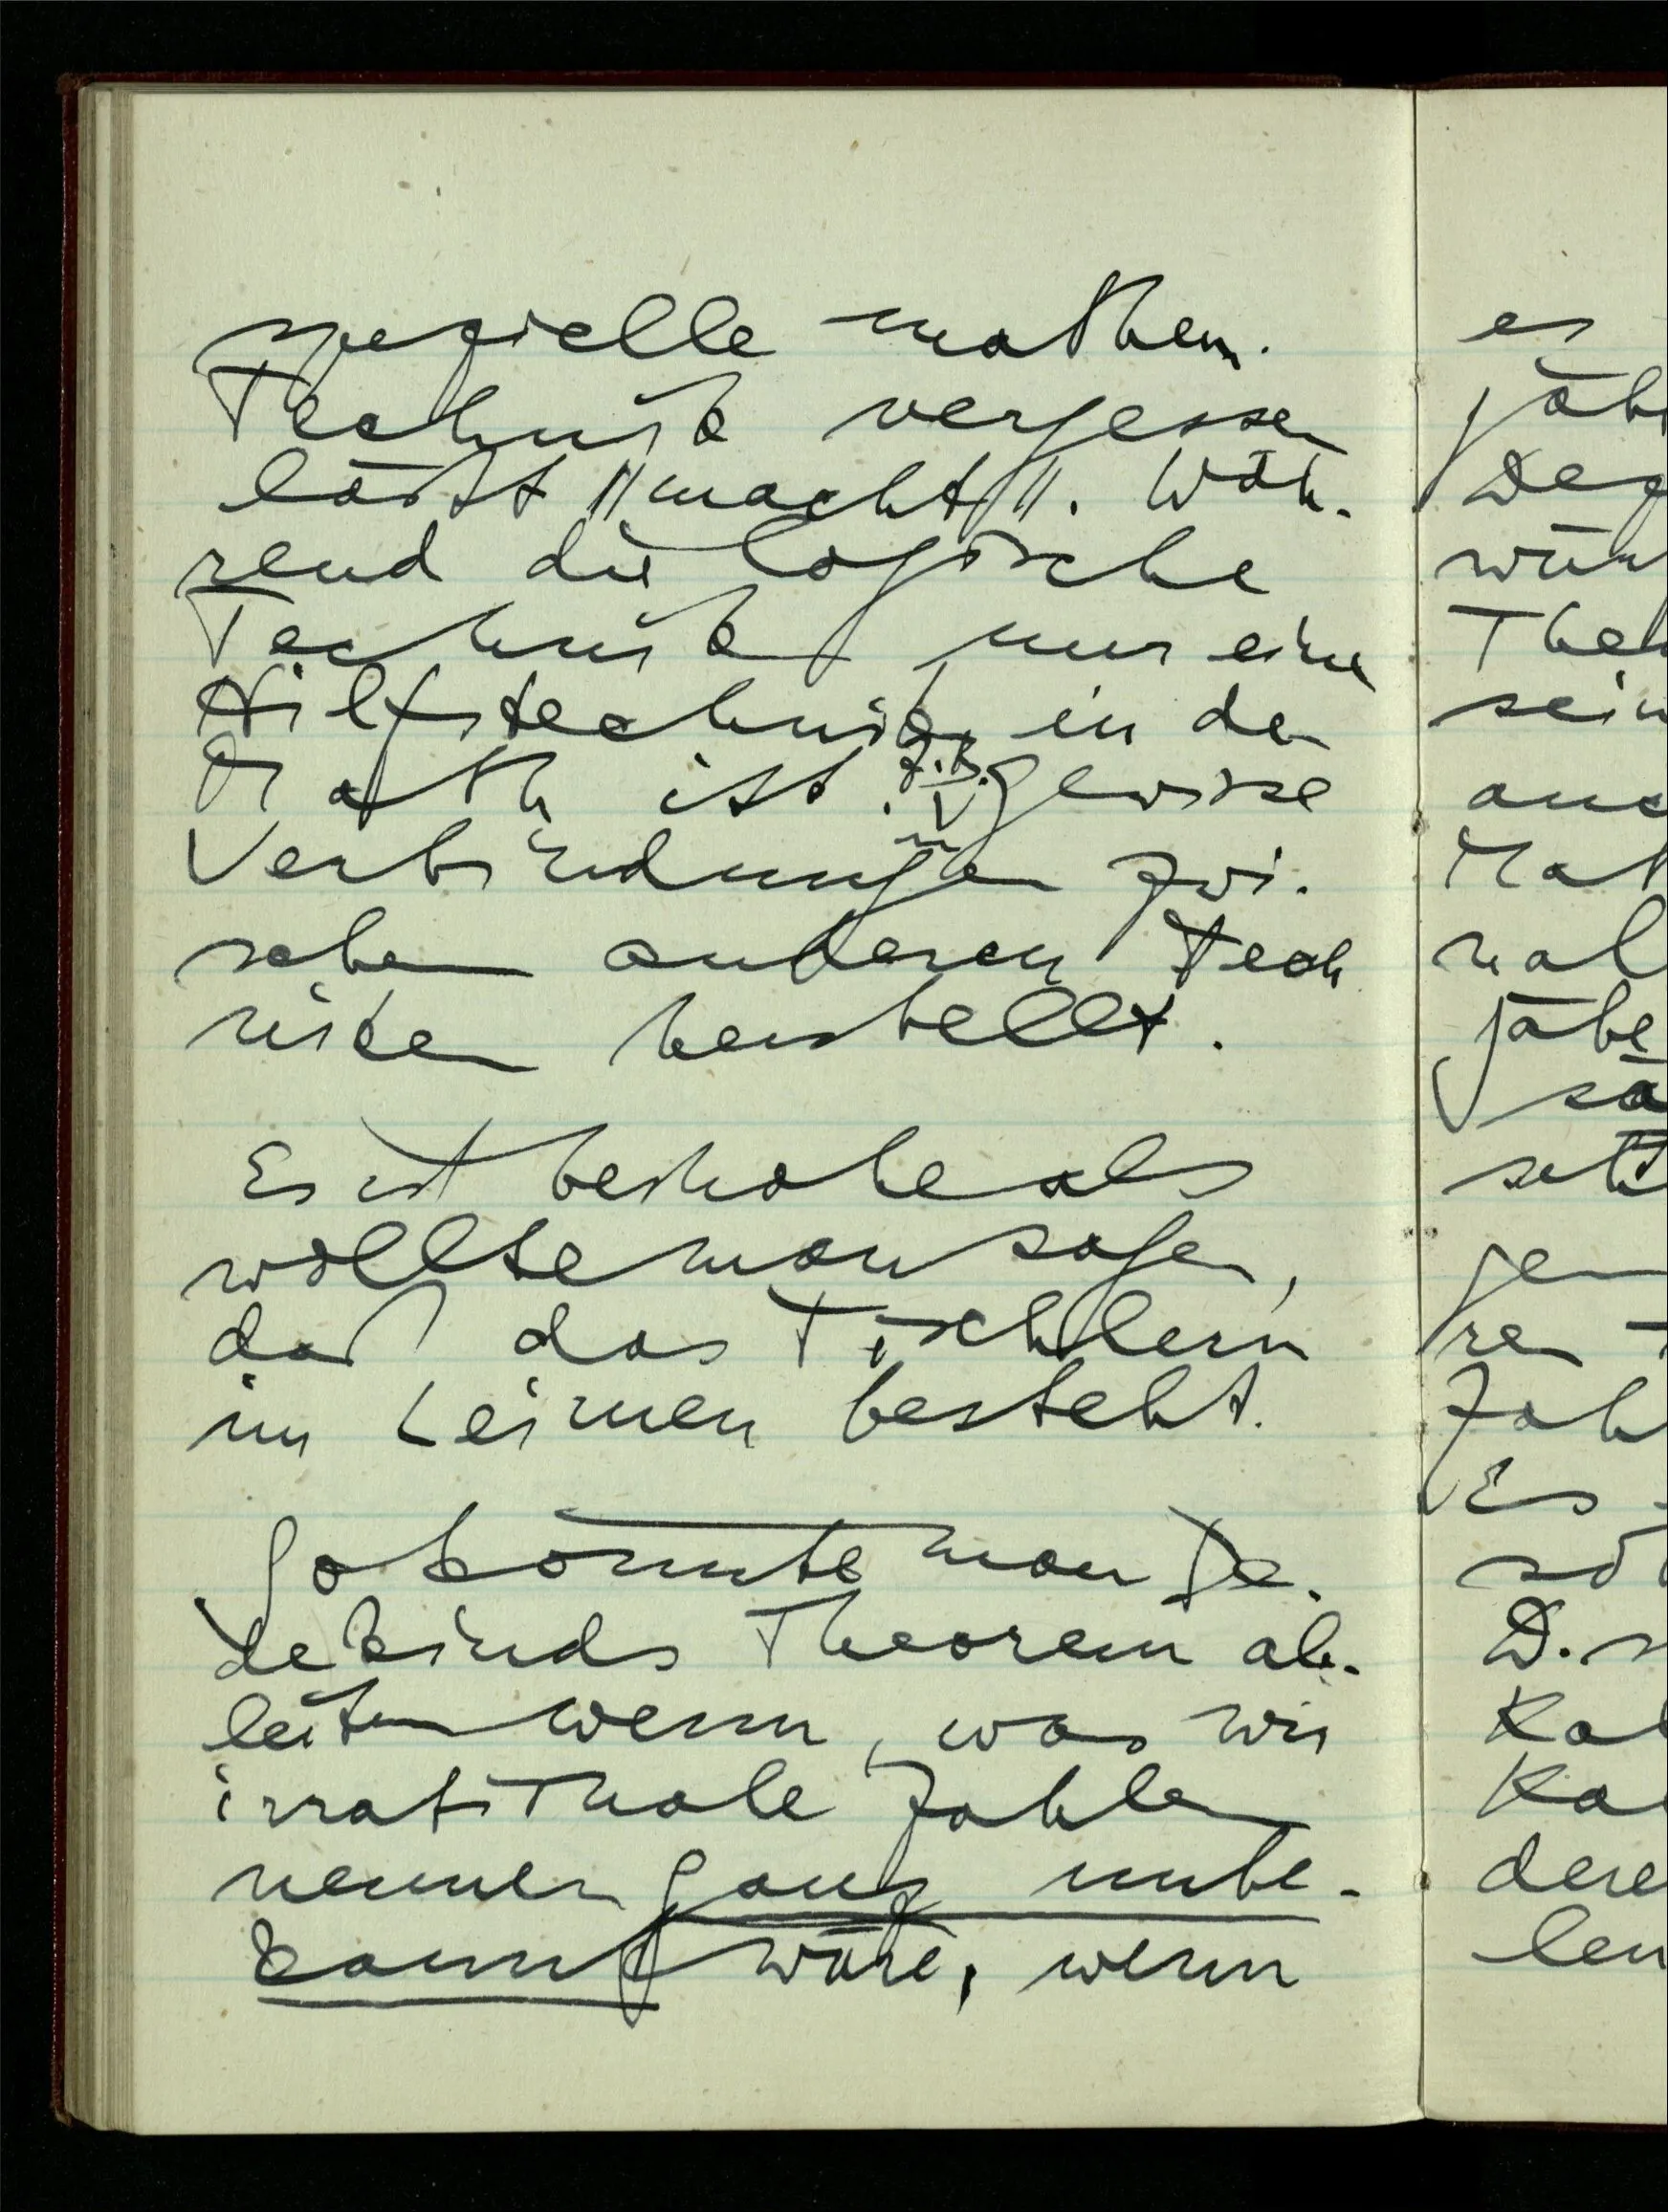 spezielle mathem.
Technik vergessen
läßt "macht". Wäh-
rend die logische
Technik nur eine
Hilfstechnik in der
Math ist. z.B. gewisse
Verbindungen zwi-
schen anderen Tech
niken herstellt.
Es ist beinahe als
wollte man sagen,
daß das Tischlern
im Leimen besteht.
So könnte man De-
dekinds Theorem ab-
leiten wenn, was wir
irrationale Zahlen
nennen ganz unbe-
kannt wäre, wenn
es
Es
D.